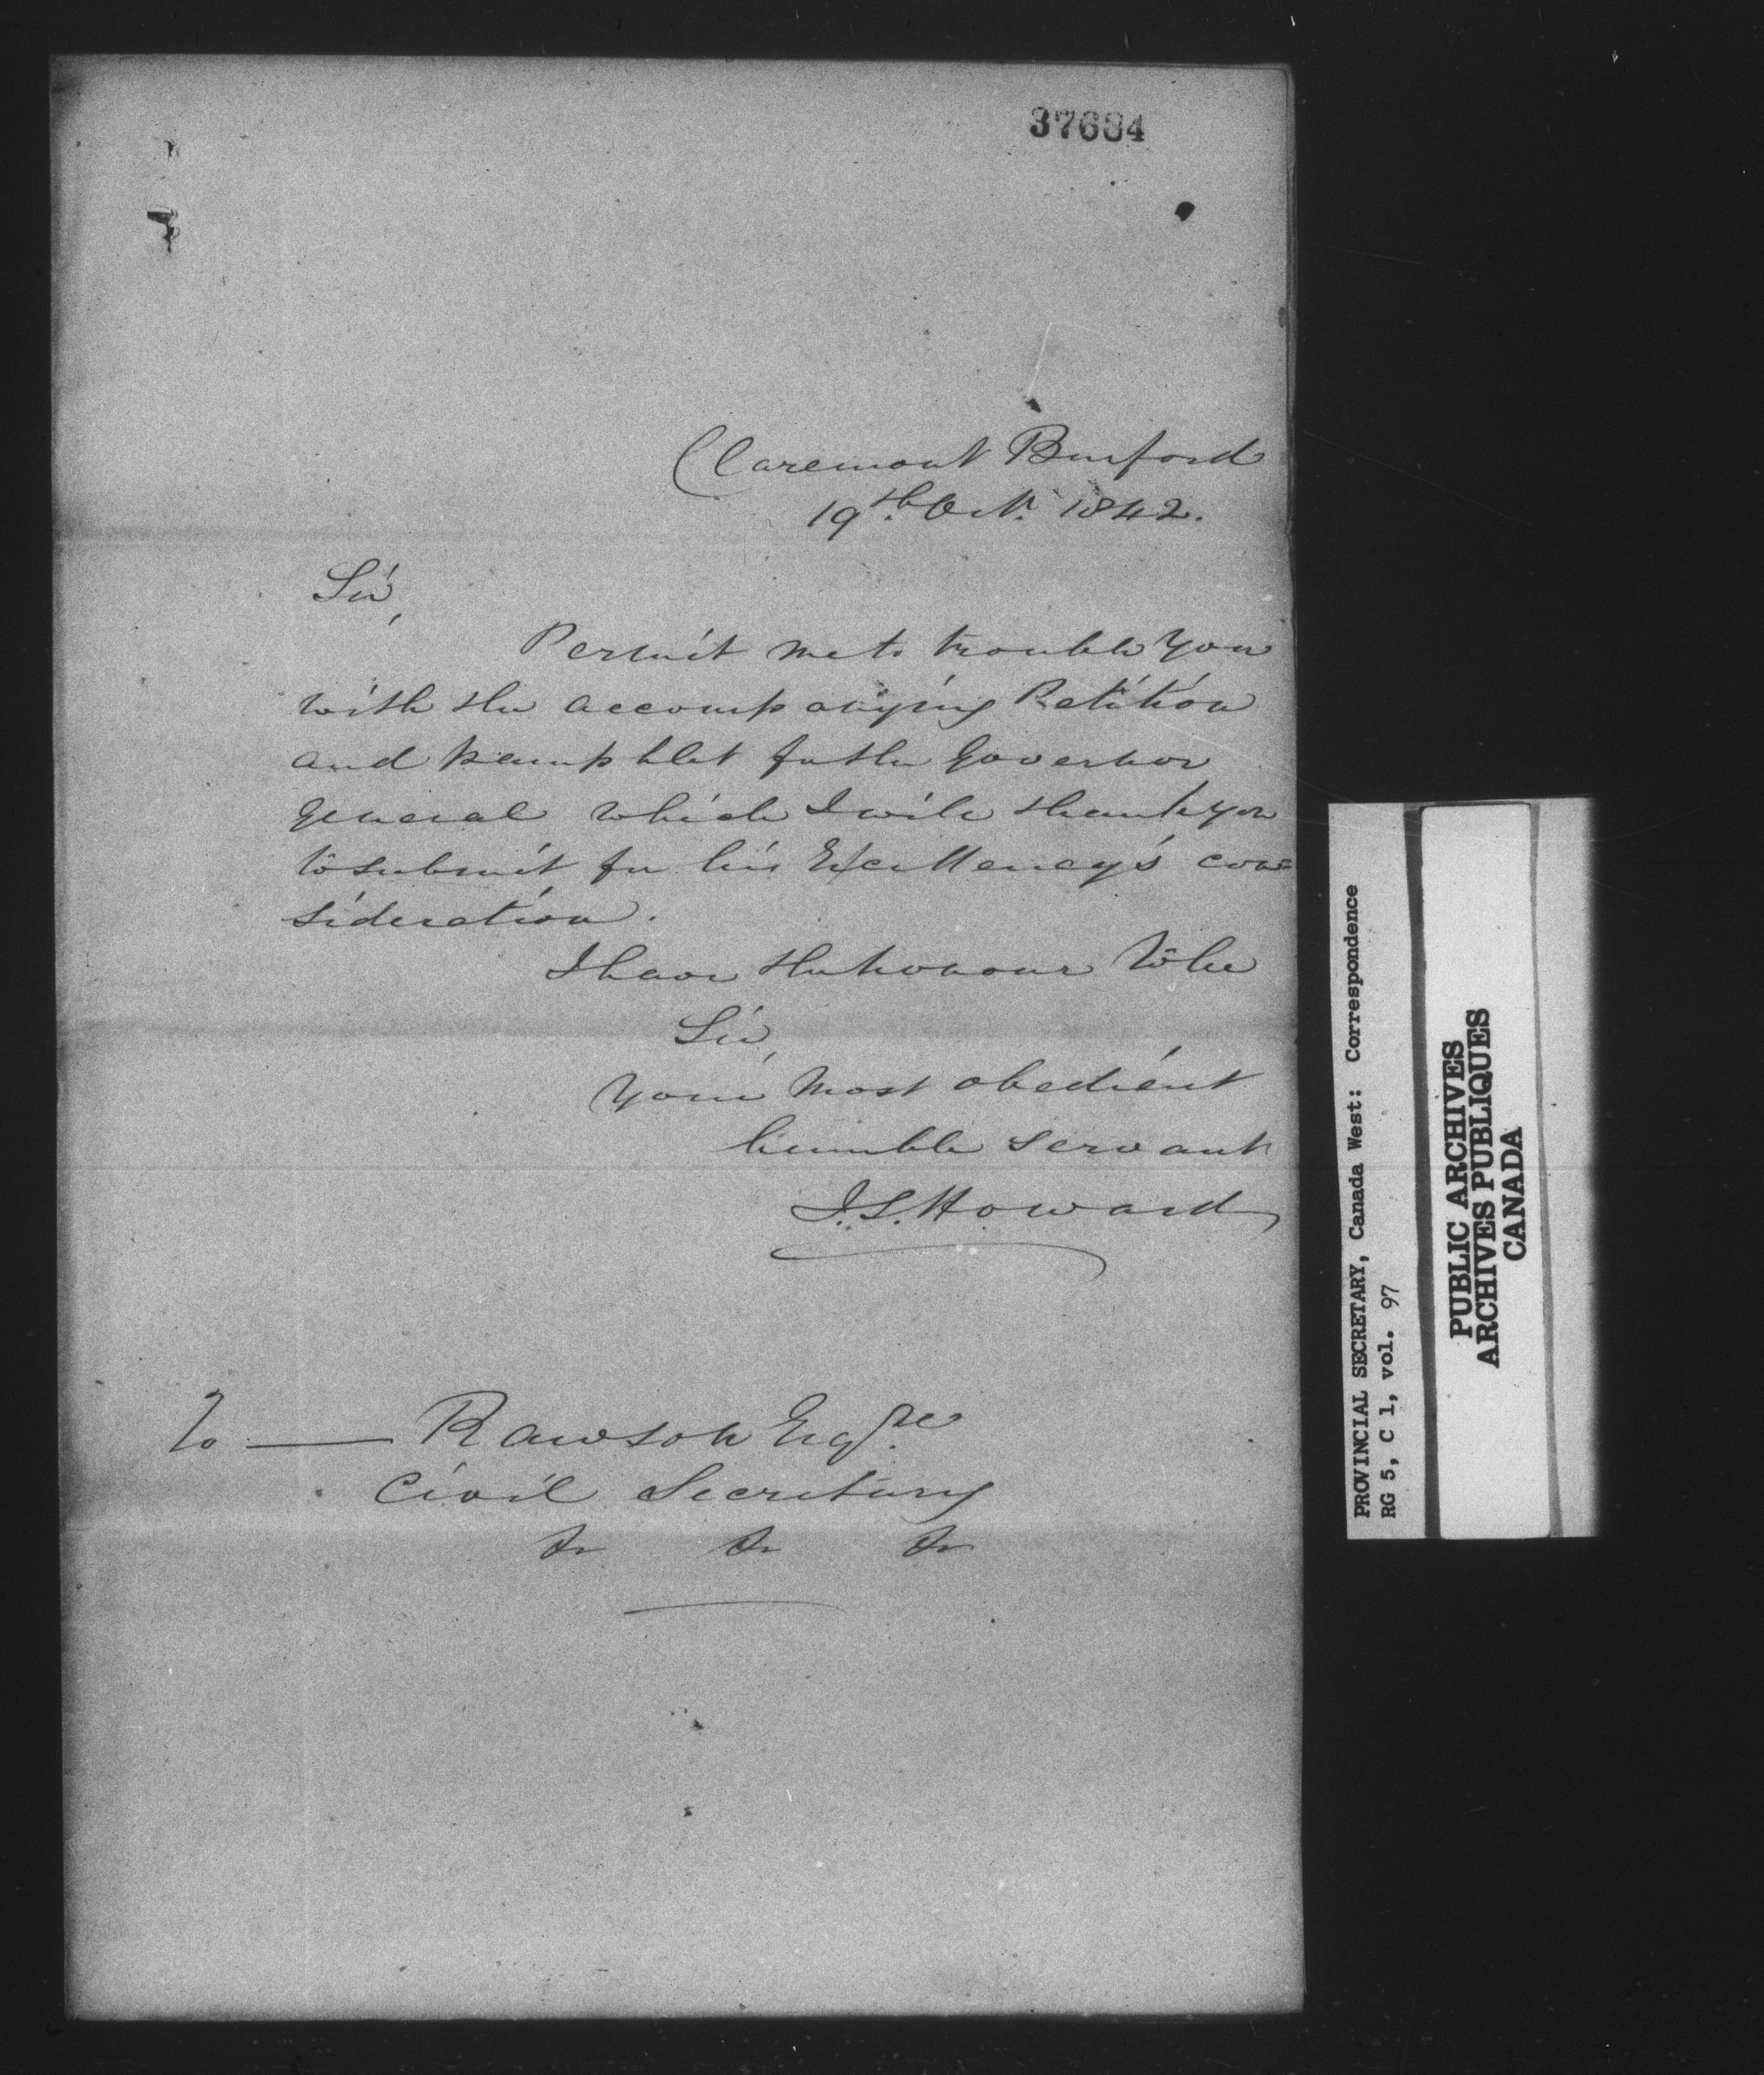 37684
Claremont Burford
19th. Oct. 1842.
Sir,
Permit me to trouble You
with the accompanying Petition
and pamphlet for the Governor
General which I will thank you
to submit for his Excellency's con=
sideration.
I have the honour to be
Sir,
Your most obedient
humble servant
J.S. Howard
To —— Rawson Esqre
Civil Secretary
&c &c &c
PROVINCIAL SECRETARY, Canada West: Correspondence
RG 5, C 1, vol. 97
PUBLIC ARCHIVES
ARCHIVES PUBLIQUES
CANADA